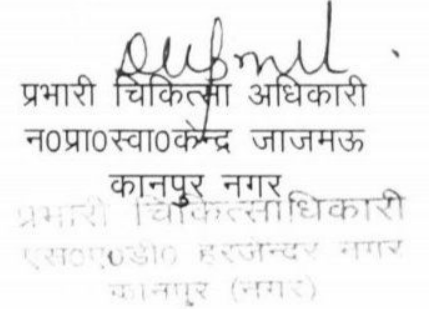 प्रभारी चिकित्सा अधिकारी
न0प्रा0स्वा0केन्द्र जाजमऊ
कानपुर नगर
प्रभारी चिकित्साधिकारी
एस0ए0डी0 हरजेन्दर नगर
कानपुर (नगर)